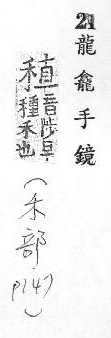 21 龍龕手鏡
稙音陟早
種禾也
(禾部 p147)